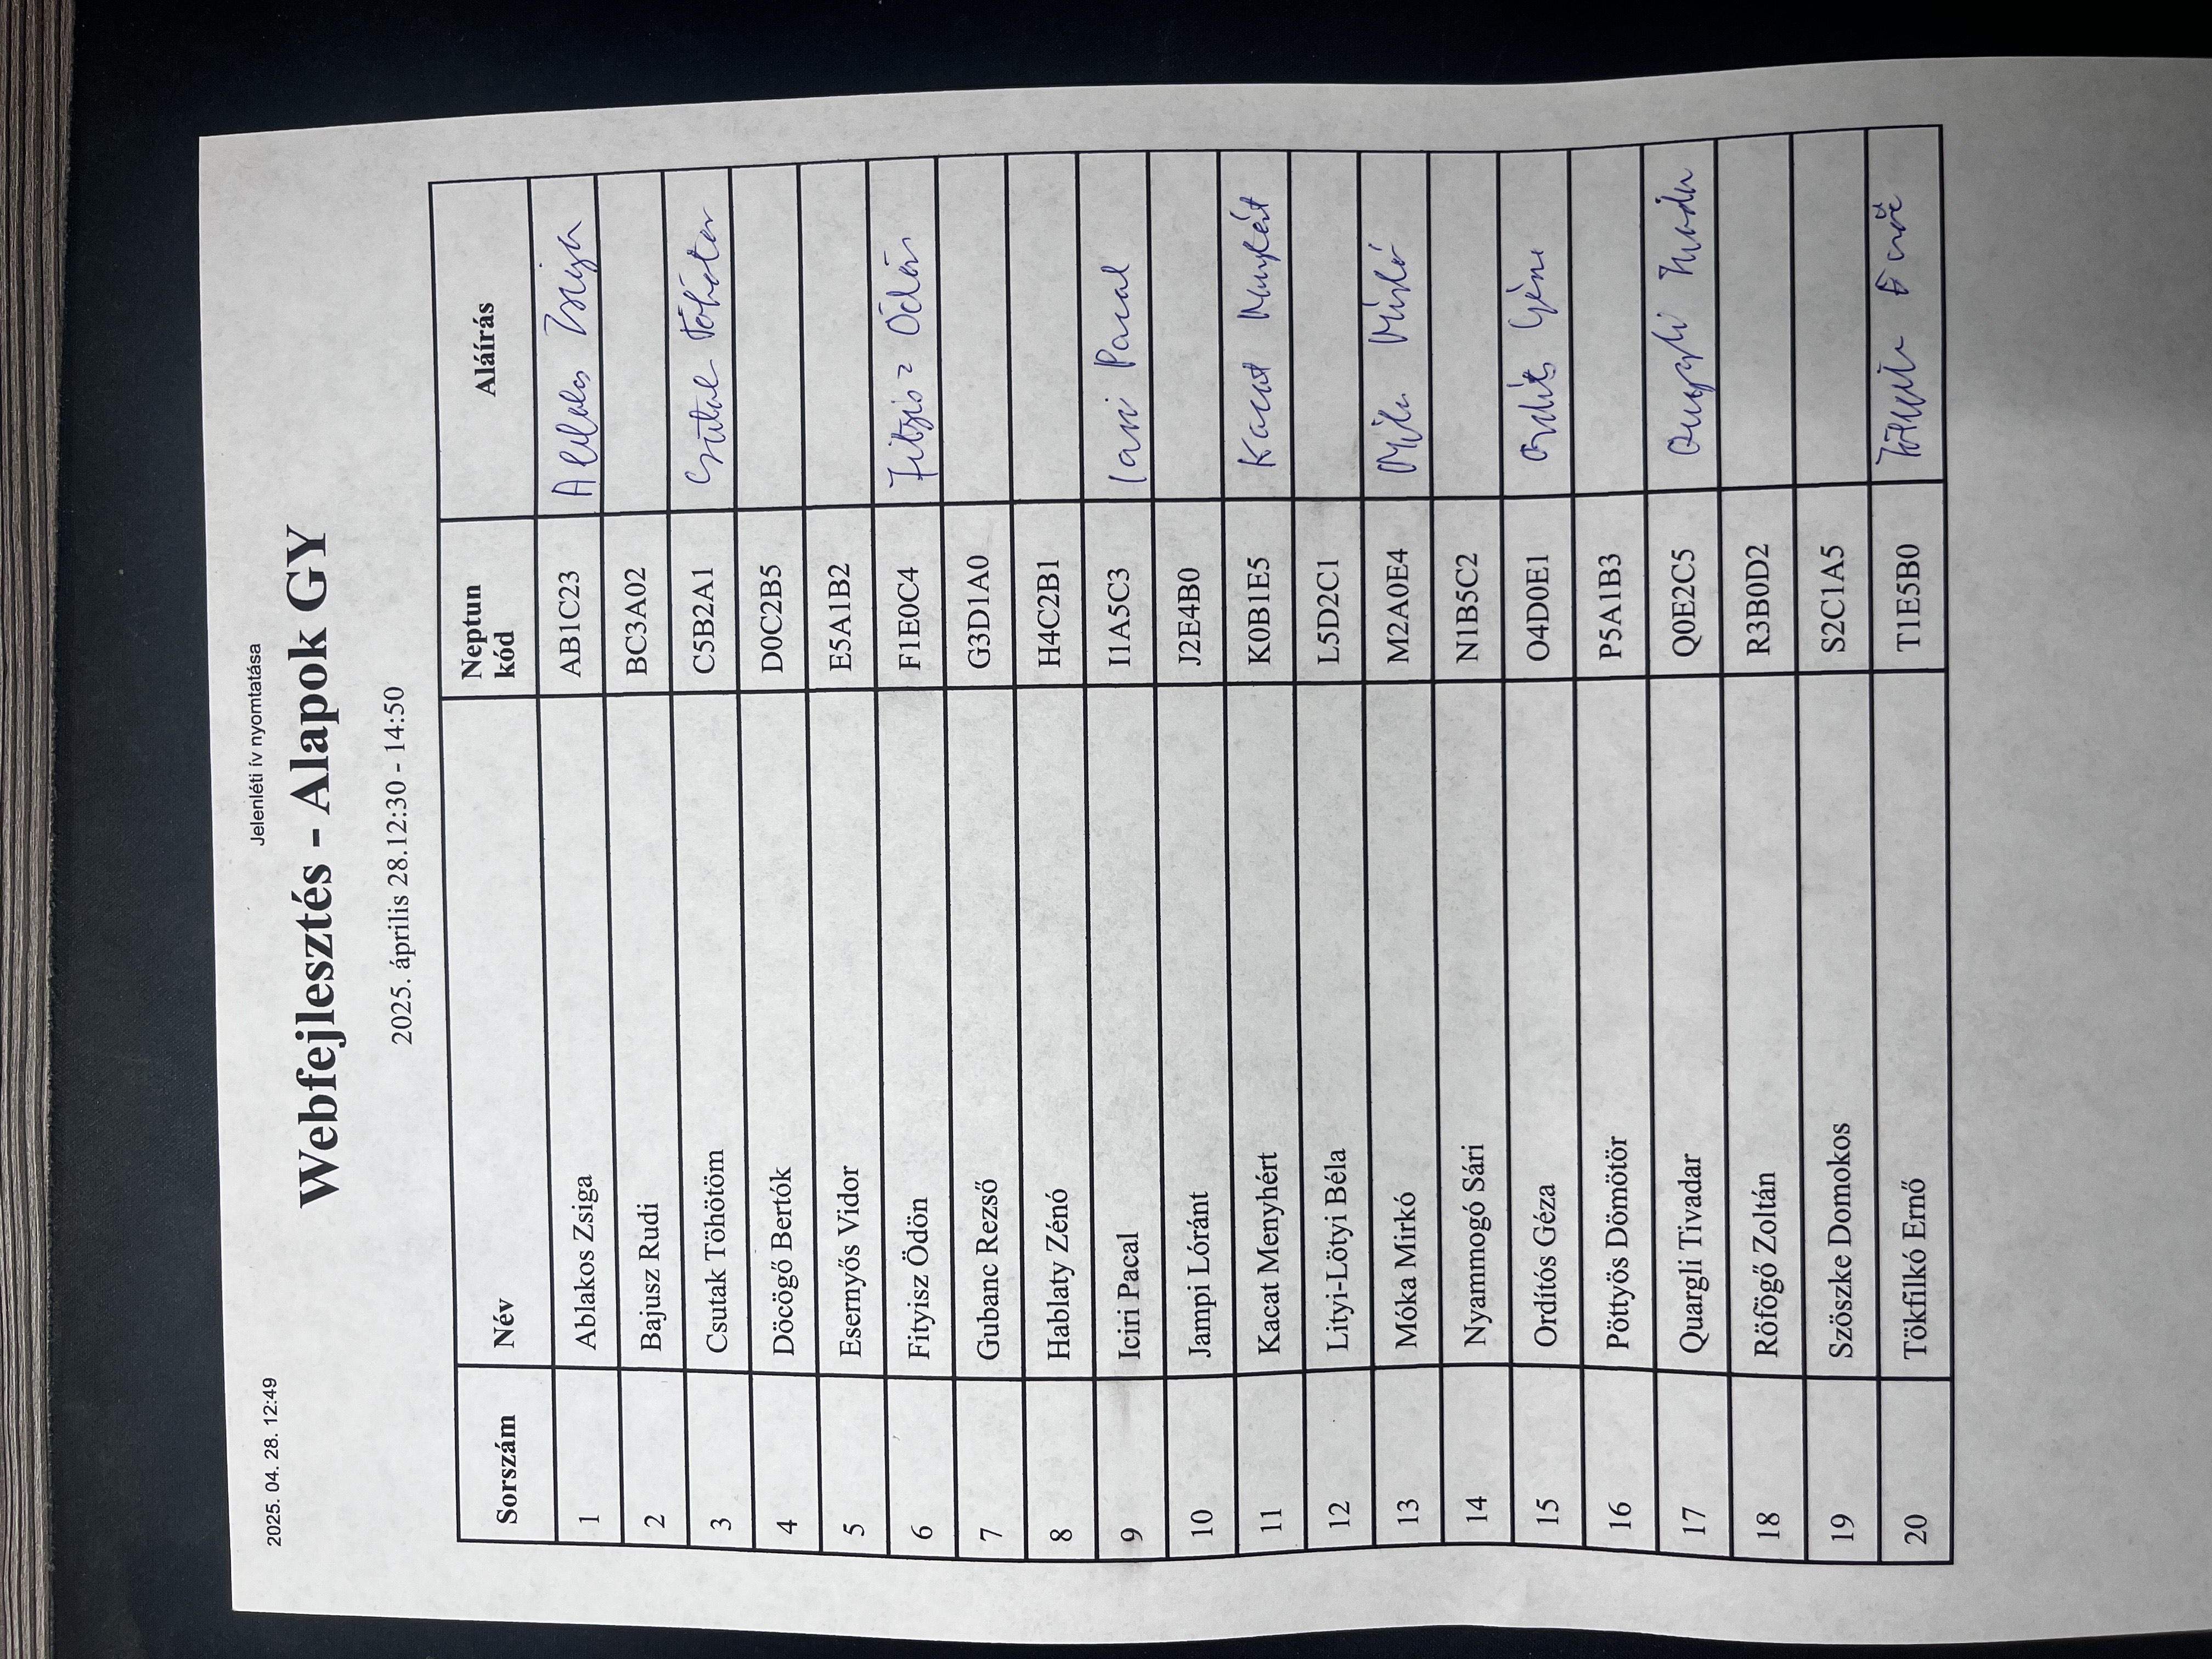 2025. 04. 28. 12:49
Jelenléti ív nyomtatása
Webfejlesztés - Alapok GY
2025. április 28.12:30 - 14:50
Sorszám Név Neptun kód Aláírás
1 Ablakos Zsiga AB1C23 Ablakos Zsiga
2 Bajusz Rudi BC3A02
3 Csutak Töhötöm C5B2A1 Csutak
4 Döcögő Bertók D0C2B5
5 Esernyős Vidor E5A1B2
6 Fityisz Ödön F1E0C4 Fityisz Ödön
7 Gubanc Rezső G3D1A0
8 Hablaty Zénó H4C2B1
9 Iciri Pacal I1A5C3 Iciri Pacal
10 Jampi Lóránt J2E4B0
11 Kacat Menyhért K0B1E5 Kacat Menyhért
12 Lityi-Lötyi Béla L5D2C1
13 Móka Mirkó M2A0E4 Móka Mirkó
14 Nyammogó Sári N1B5C2
15 Ordítós Géza O4D0E1 Géza
16 Pöttyös Dömötör P5A1B3
17 Quargli Tivadar Q0E2C5 Quargli Tivadar
18 Röfögő Zoltán R3B0D2
19 Szöszke Domokos S2C1A5
20 Tökfilkó Ernő T1E5B0 Ernő